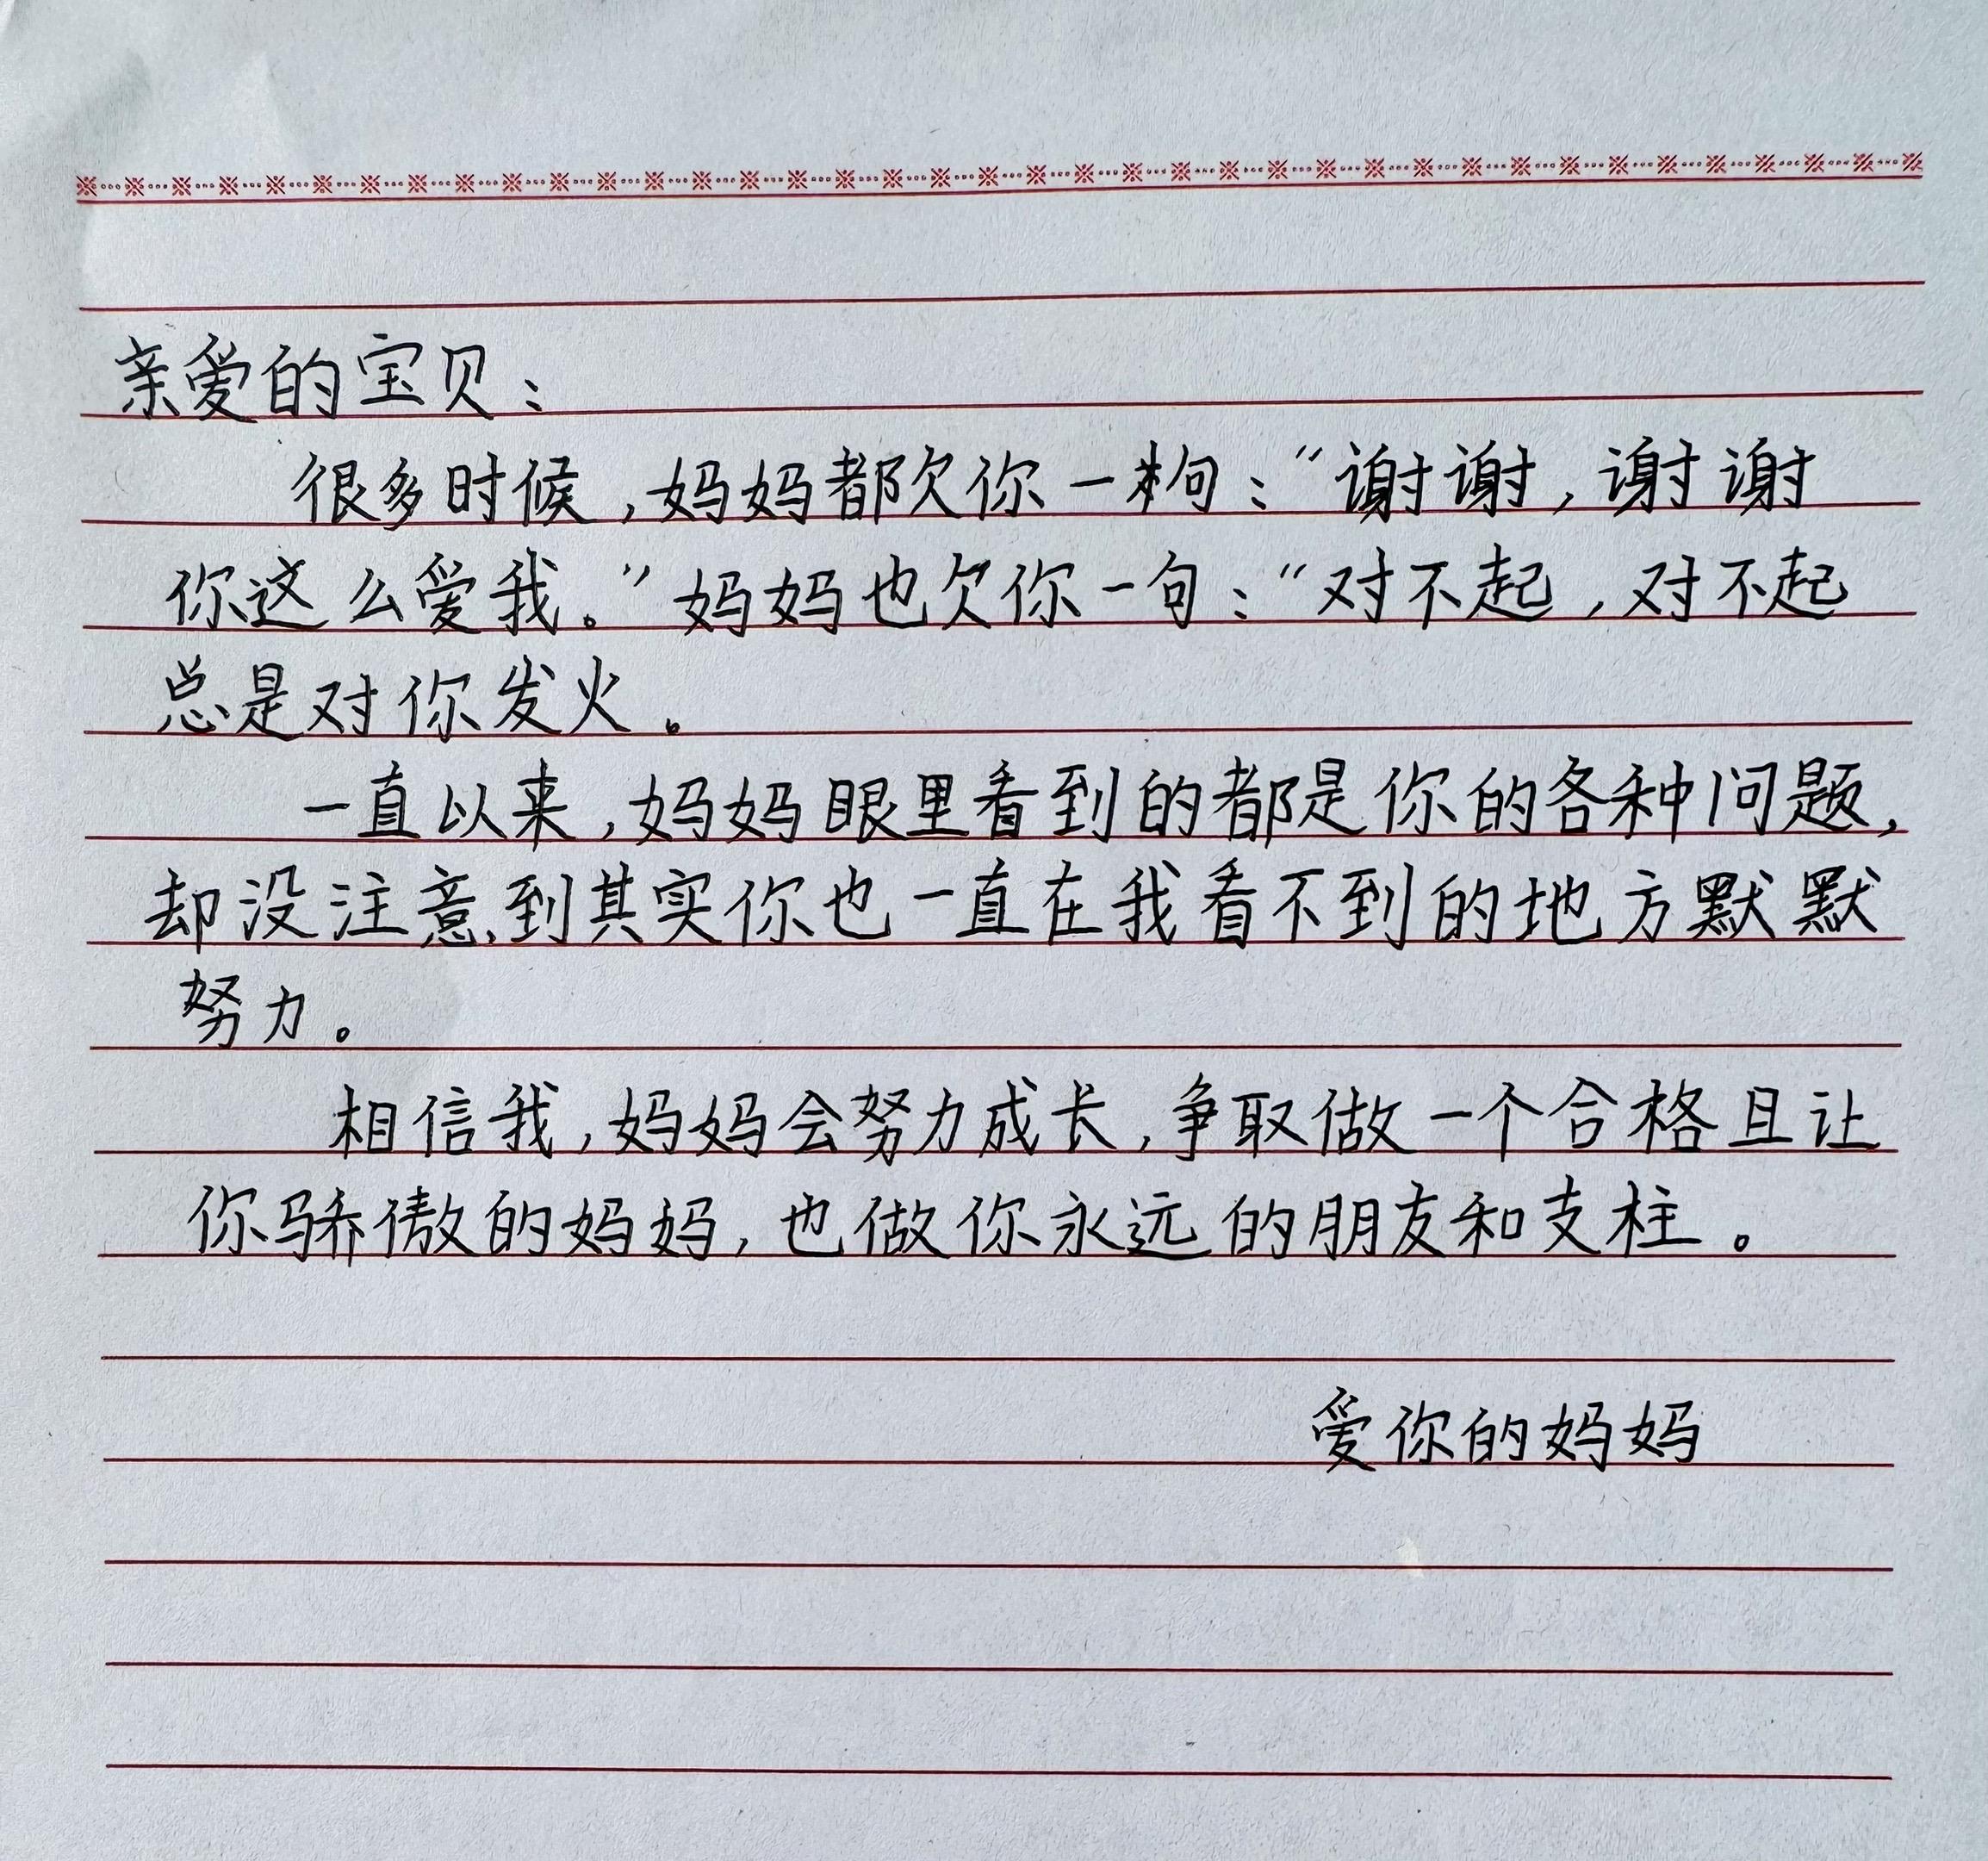 亲爱的宝贝：
很多时候，妈妈都欠你一句：“谢谢，谢谢
你这么爱我。”妈妈也欠你一句：“对不起，对不起
总是对你发火。
一直以来，妈妈眼里看到的都是你的各种问题，
却没注意到其实你也一直在我看不到的地方默默
努力。
相信我，妈妈会努力成长，争取做一个合格且让
你骄傲的妈妈，也做你永远的朋友和支柱。
爱你的妈妈